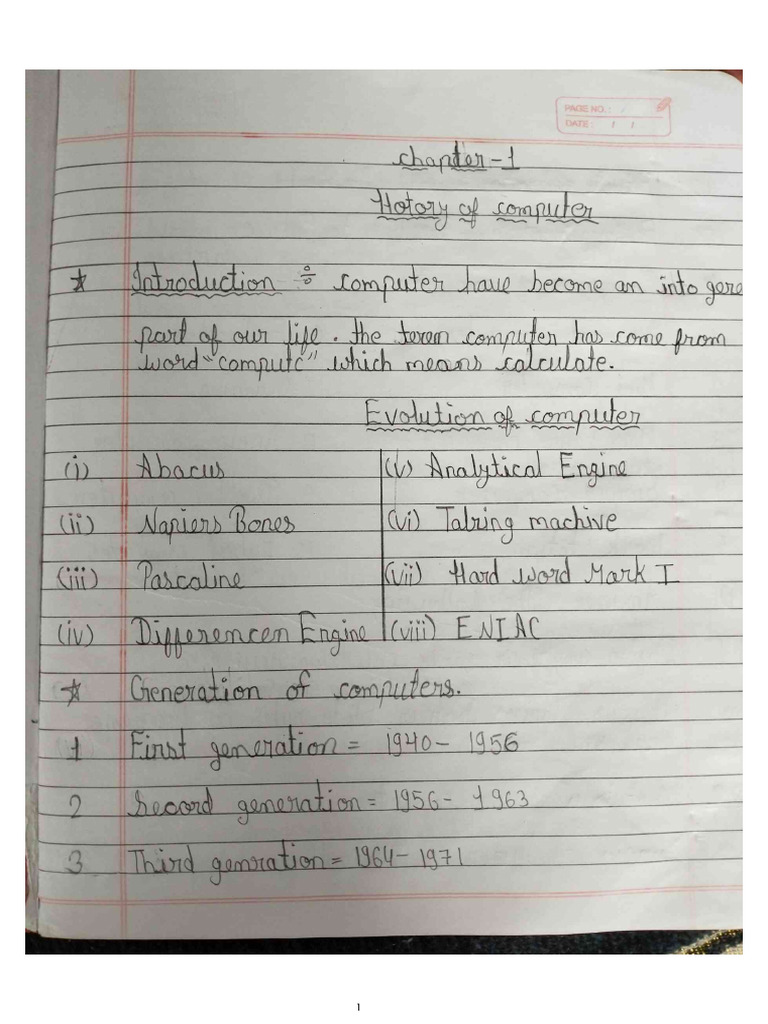 PAGE NO.:
DATE: / /
chapter-1
Hotory of computer
* Introduction ÷ computer have become an into gere
part of our life. the terem computer has come from
word "computc" which means calculate.
Evolution of computer
(i) Abacus (v) Analytical Engine
(ii) Napiers Bones (vi) Talring machive
(iii) Pascaline (vii) Hard word Mark I
(iv) Differencen Engine (viii) ENIAC
* Generation of computers.
1 First generation = 1940- 1956
2 Second generation = 1956- 1963
3 Third genration = 1964- 1971
1